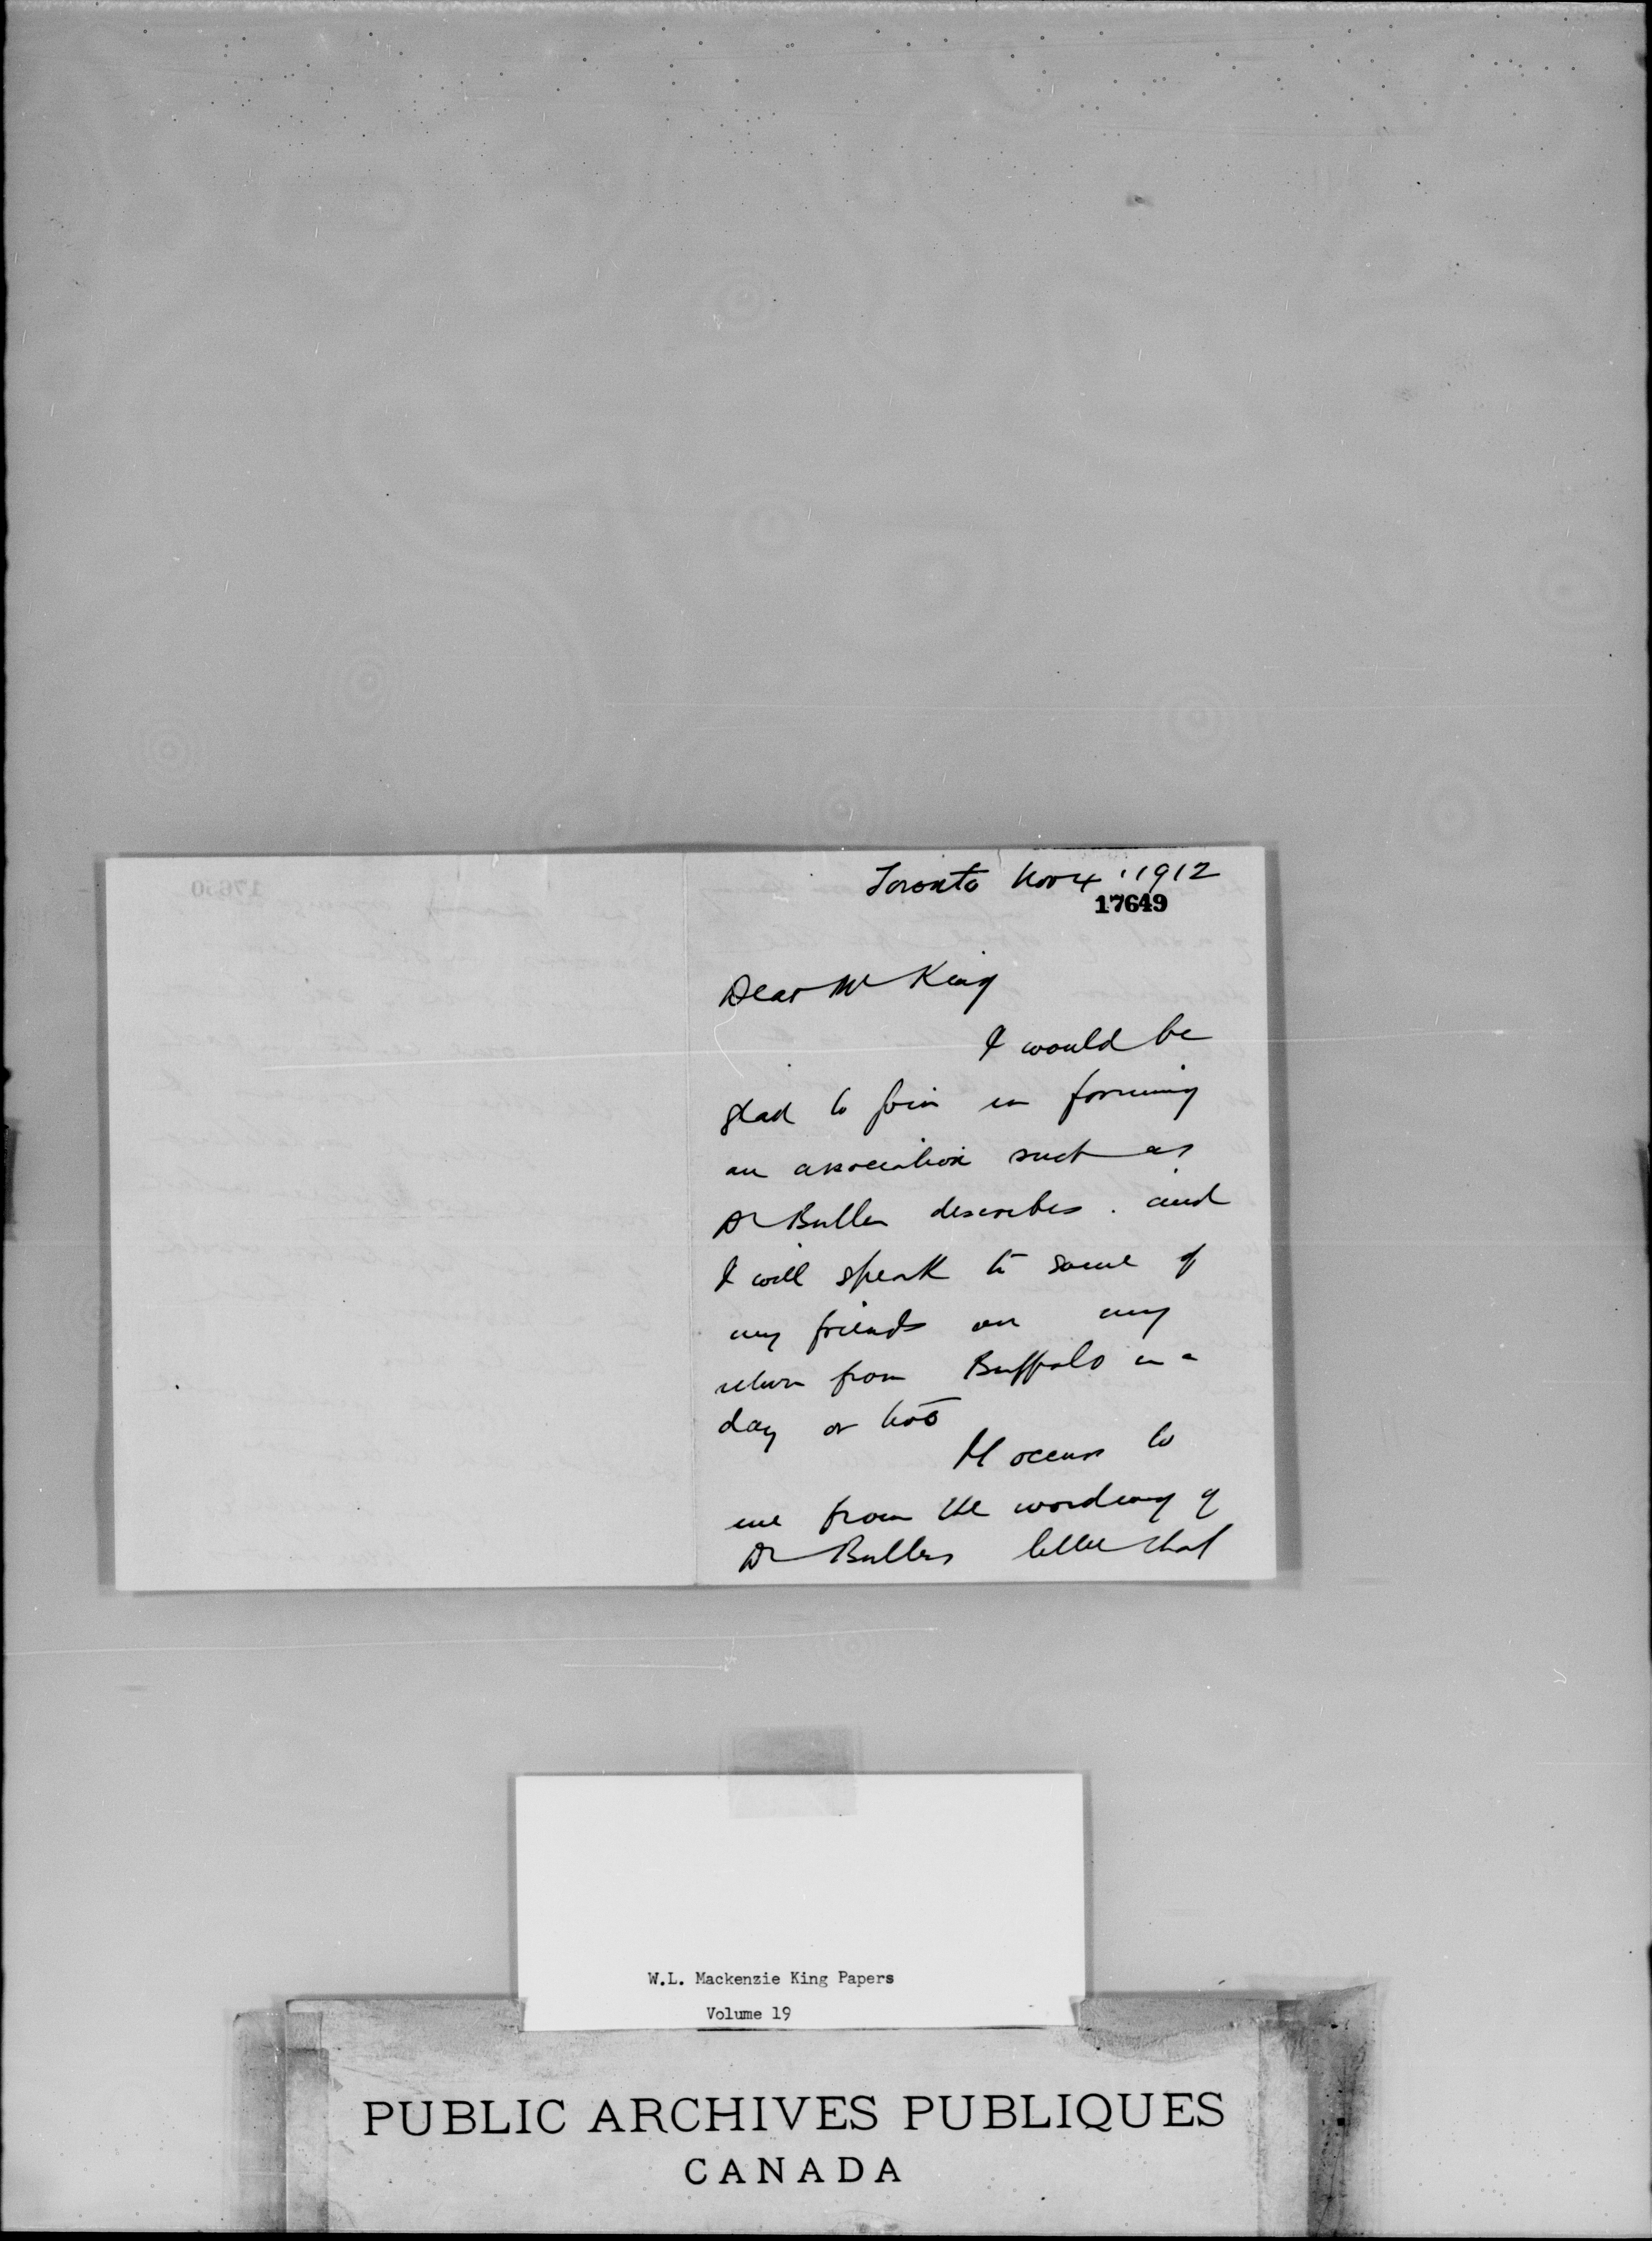 Toronto Nov 4 '1912
17649
Dear Mr King
I would be
glad to join in forming
an association such as
Dr Butler describes. and
I will speak to some of
my friends on my
return from Buffalo in a
day or two
It occurs to
me from the wording of
Dr Butlers letter that
17650
W.L. Mackenzie King Papers
Volume 19
PUBLIC ARCHIVES PUBLIQUES
CANADA